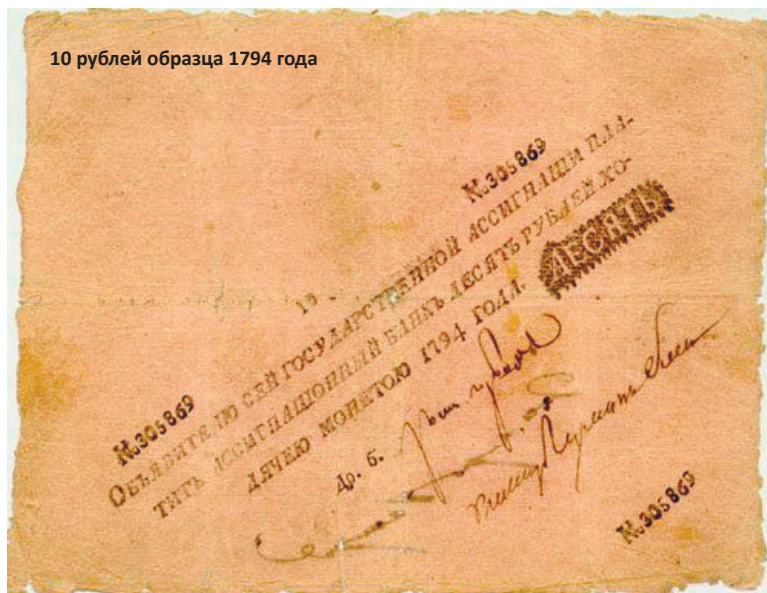 10 рублей образца 1794 года
№305869
10
№305869
ОБЪЯВИТЕЛЮ СЕЙ ГОСУДАРСТВЕННОЙ АССИГНАЦІИ ПЛА-
ТИТЪ АССИГНАЦІОННЫЙ БАНКЪ ДЕСЯТЬ РУБЛЕЙ ХО-
ДЯЧЕЮ МОНЕТОЮ 1794 ГОДА. ДЕСЯТЬ
№305869